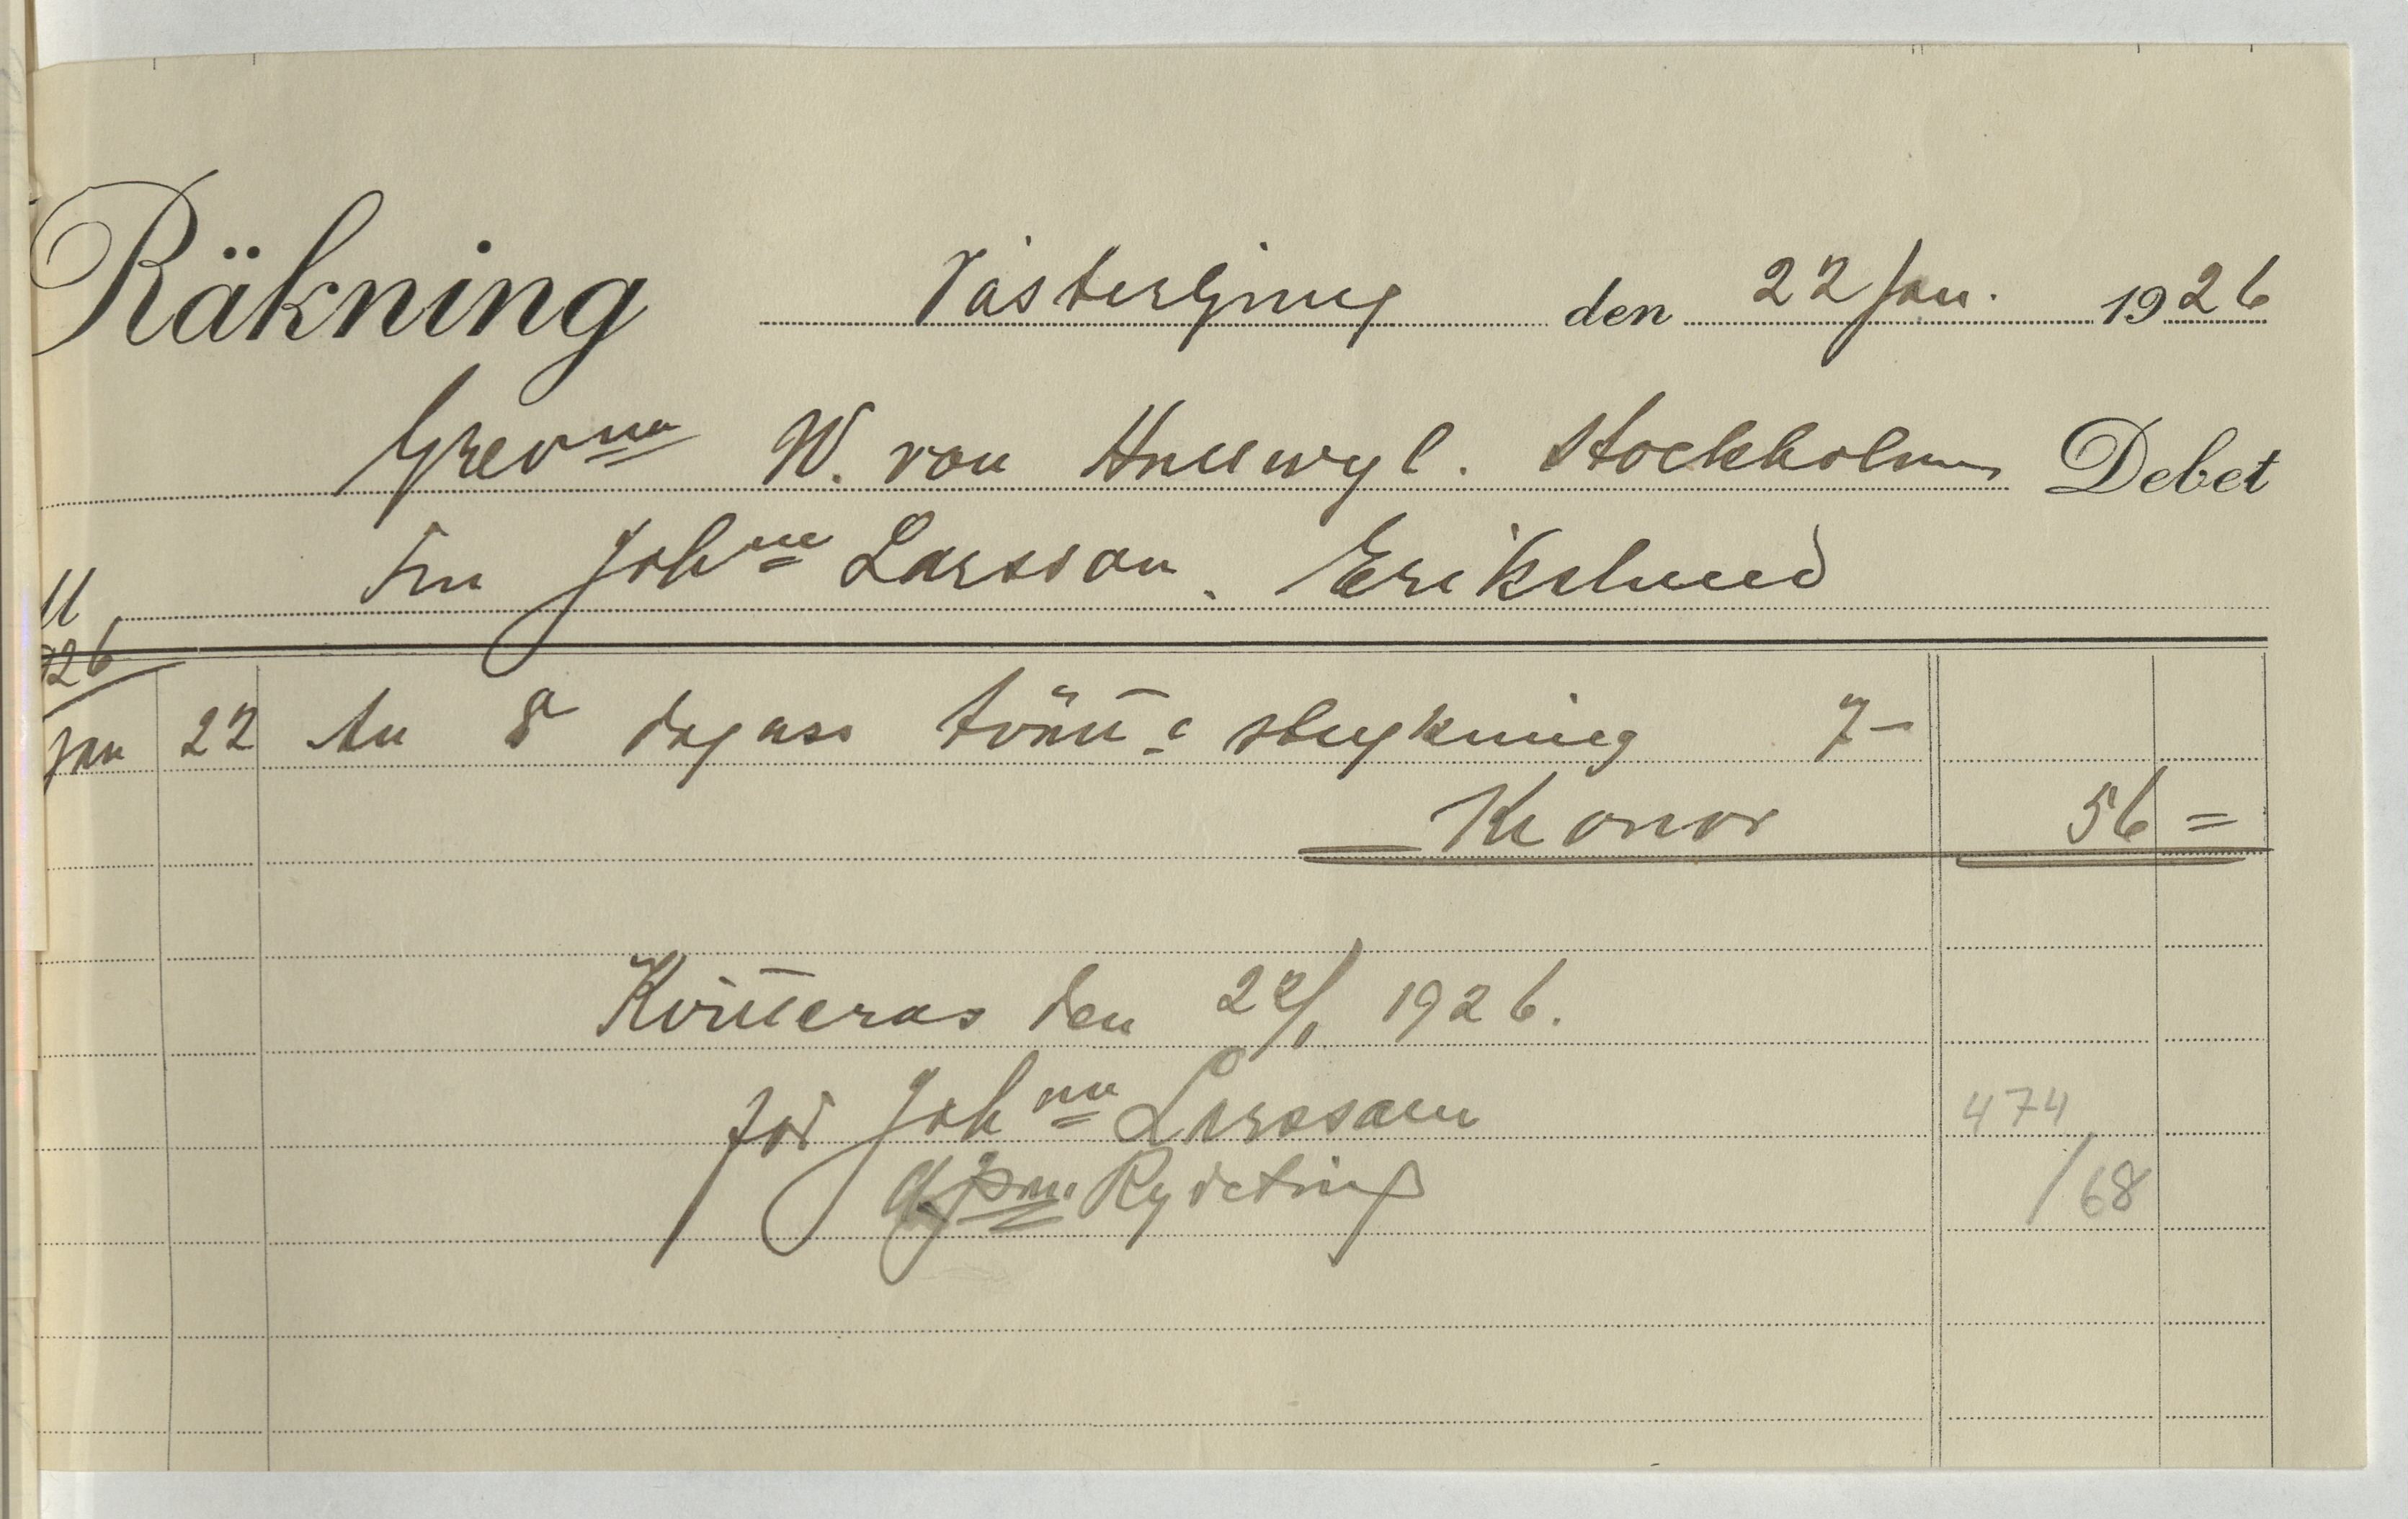 Räkning Västerljung den 22 Jan. 1926
Grevna W. von Hallwyl. Stockholm Debet
Till Fru Johna Larsson. Erikslund
1926
Jan 22 An 8 dagars tvätt & strykning 7-
Kronor 56 =
Kvitteras den 22/1 1926.
för Johna Larsson
474
gm. Rydeting
/68